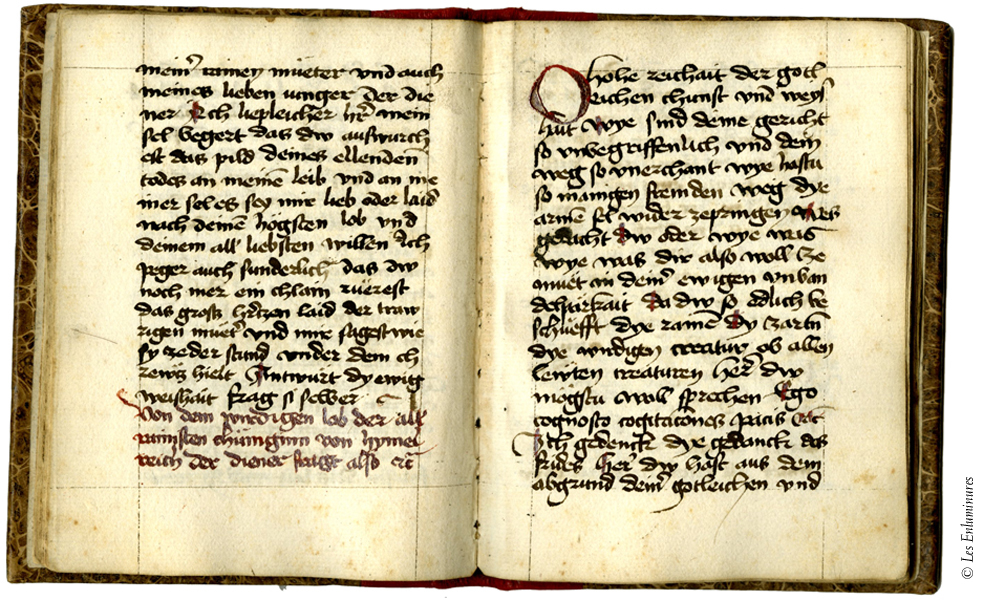 meinr̄ rainen mueter vnd auch
meines lieben iunger Der die
ner Ach liepleicher hr̄e mein
sel begert das dw auswurch
est das pild deines ellenden
todes an meinē leib vnd an me
iner sel es sey mir lieb oder laid
nach deinē högsten lob vnd
deinem all liebsten willen Ich
peger auch sunderlich das dw
noch mer ein chlain ruerest
das gross hertzen laid der traw
rigen muetr̄ vnd mir sagest wie
sy ze der stund vnder dem ch
rewtz hielt Antwurt dy ewig
weishait frag si selber
Von dem wirdigen lob der all
rainisten chuniginn von hymel
reich der diener fragt also etc
O hohe reichait der gotl
eichen chunst vnd weys
hait wye sind deine gericht
so vnbegriffenlich vnd dein
weg so vnerchant wye hastu
so maingen fremden weg dye
armē sel wider zepringen Wes
gedacht dw oder wye was
wye was dir also woll ze
muet in deinr̄ ewigen vnban
delparkait Da dw so edlich be
schuefft dye rainē dy zartn̄
dye wirdigen creatur ob allen
lewten creaturen herr̄ dw
mogstu woll sprechen Ego
cognosco cogitaciones pacis etc
Ich gedenck dye gedanck des
frides herr̄ dw hast aus dem
abgrund deinr̄ gotleichen vnd
© Les Enluminures